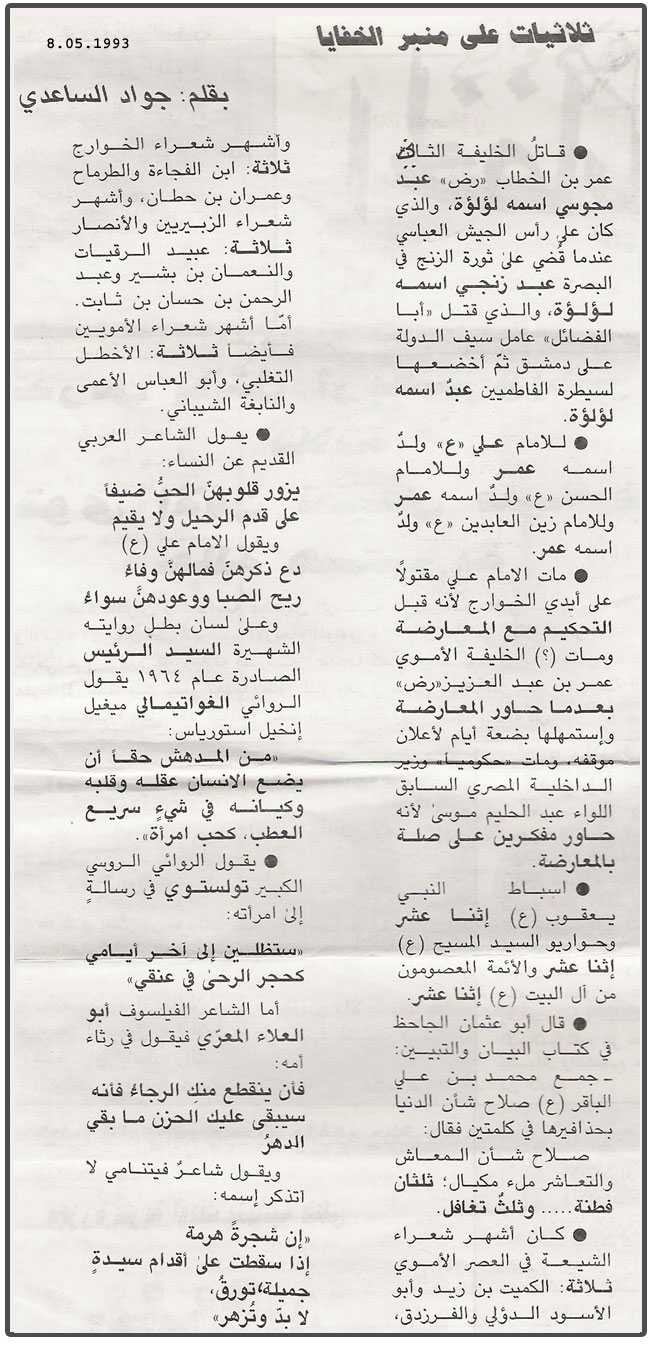 ثلاثيات على منبر الخفايا
8.05.1993
بقلم: جواد الساعدي
● قاتلُ الخليفة الثاني
عمر بن الخطاب «رض» عبد
مجوسي اسمه لؤلؤة، والذي
كان على رأس الجيش العباسي
عندما قُضي علىٰ ثورة الزنج في
البصرة عبد زنجي اسمه
لؤلؤة، والذي قتل «أبا
الفضائل» عامل سيف الدولة
على دمشق ثمّ أخضعها
لسيطرة الفاطميين عبدٌ اسمه
لؤلؤة.
● للامام علي «ع» ولدٌ
اسمه عمر وللامام
الحسن «ع» ولدٌ اسمه عمر
وللامام زين العابدين «ع» ولدٌ
اسمه عمر.
● مات الامام علي مقتولًا
على أيدي الخوارج لأنه قبل
التحكيم مع المعارضة
ومات (؟) الخليفة الأموي
عمر بن عبد العزيز«رض»
بعدما حاور المعارضة
وإستمهلها بضعة أيام لأعلان
موقفه، ومات «حكومياً» وزير
الداخلية المصري السابق
اللواء عبد الحليم موسىٰ لأنه
حاور مفكرين على صلة
بالمعارضة.
● اسباط النبي
يعقوب (ع) إثنا عشر
وحواريو السيد المسيح (ع)
إثنا عشر والأئمة المعصومون
من آل البيت (ع) إثنا عشر.
● قال أبو عثمان الجاحظ
في كتاب البيان والتبيين:
ـ جمع محمد بن علي
الباقر (ع) صلاح شأن الدنيا
بحذافيرها في كلمتين فقال:
صلاح شأن المعاش
والتعاشر ملء مكيال؛ ثلثان
فطنة..... وثلثٌ تغافل.
● كان أشهر شعراء
الشيعة في العصر الأموي
ثلاثة: الكميت بن زيد وأبو
الأسود الدؤلي والفرزدق،
وأشهر شعراء الخوارج
ثلاثة: ابن الفجاءة والطرماح
وعمران بن حطان، وأشهر
شعراء الزبيريين والأنصار
ثلاثة: عبيد الرقيات
والنعمان بن بشير وعبد
الرحمن بن حسان بن ثابت.
أمّا أشهر شعراء الأمويين
فأيضاً ثلاثة: الأخطل
التغلبي، وأبو العباس الأعمى
والنابغة الشيباني.
● يقول الشاعر العربي
القديم عن النساء:
يزور قلوبهنّ الحبُّ ضيفاً
على قدم الرحيل ولا يقيم
ويقول الامام علي (ع)
دع ذكرهنّ فمالهنّ وفاءُ
ريح الصبا ووعودهنَّ سواءُ
وعلىٰ لسان بطل روايته
الشهيرة السيد الرئيس
الصادرة عام ١٩٦٤ يقول
الروائي الغواتيمالي ميغيل
إنخيل استورياس:
«من المدهش حقاً أن
يضع الانسان عقله وقلبه
وكيانه في شيءٍ سريع
العطب، كحب امرأة».
● يقول الروائي الروسي
الكبير تولستوي في رسالةٍ
إلىٰ امرأته:
«ستظلين إلى آخر أيامي
كحجر الرحىٰ في عنقي»
أما الشاعر الفيلسوف أبو
العلاء المعرّي فيقول في رثاء
أمه:
فأن ينقطع منك الرجاءُ فأنه
سيبقى عليك الحزن ما بقي
الدهرُ
ويقول شاعرٌ فيتنامي لا
أتذكر إسمه:
«إن شجرةً هرمة
إذا سقطت علىٰ أقدام سيدةٍ
جميلة، تورقُ،
لا بدّ وتُزهر»